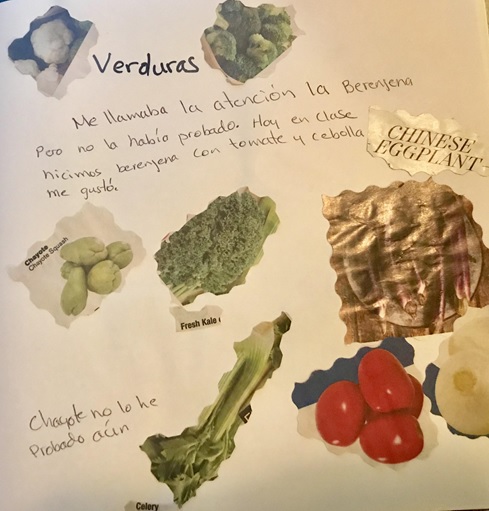 Verduras
Me llamaba la atención la Berenjena
Pero no la había probado. Hoy en clase
hicimos berenjena con tomate y cebolla
me gustó.
CHINESE
EGGPLANT
Chayote
Chayote Squash
Fresh Kale
Chayote no lo he
Probado aún
Celery